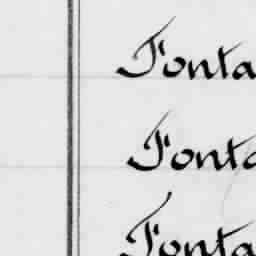 Fonta
Fonta
Fonta